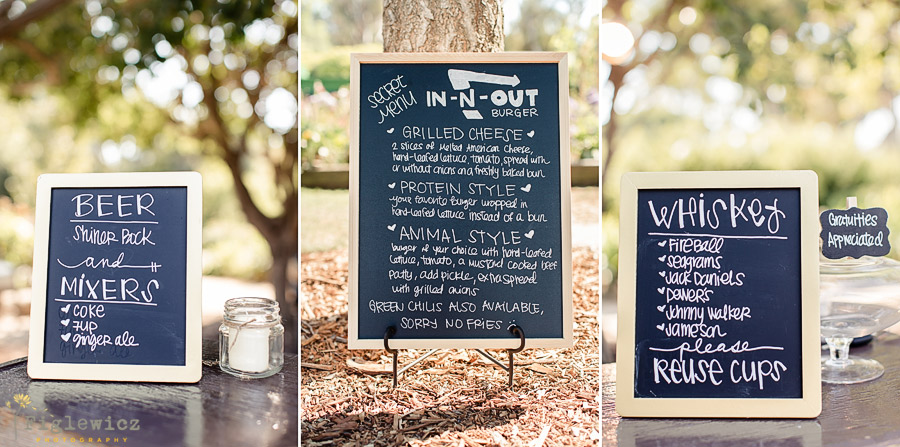 BEER
Shiner Bock
and
MIXERS
coke
7UP
ginger ale
secret
MENU
IN-N-OUT
BURGER
GRILLED CHEESE
2 slices of Melted American Cheese,
hand-leafed lettuce, tomato, spread with
or without onions on a freshly baked bun
PROTEIN STYLE
your favorite burger wrapped in
hand-leafed lettuce instead of a bun
ANIMAL STYLE
burger of your choice with hand-leafed
lettuce, tomato, a mustard cooked beef
patty, add pickle, extra spread
with grilled onions
GREEN CHILIS ALSO AVAILABLE,
SORRY NO FRIES :)
WHISKEY
FIREBALL
seagrams
JACK DANIELS
DEWERS
JOHNNY WALKER
JAMESON
please
REUSE CUPS
Gratuities
Appreciated
PHOTOGRAPHY